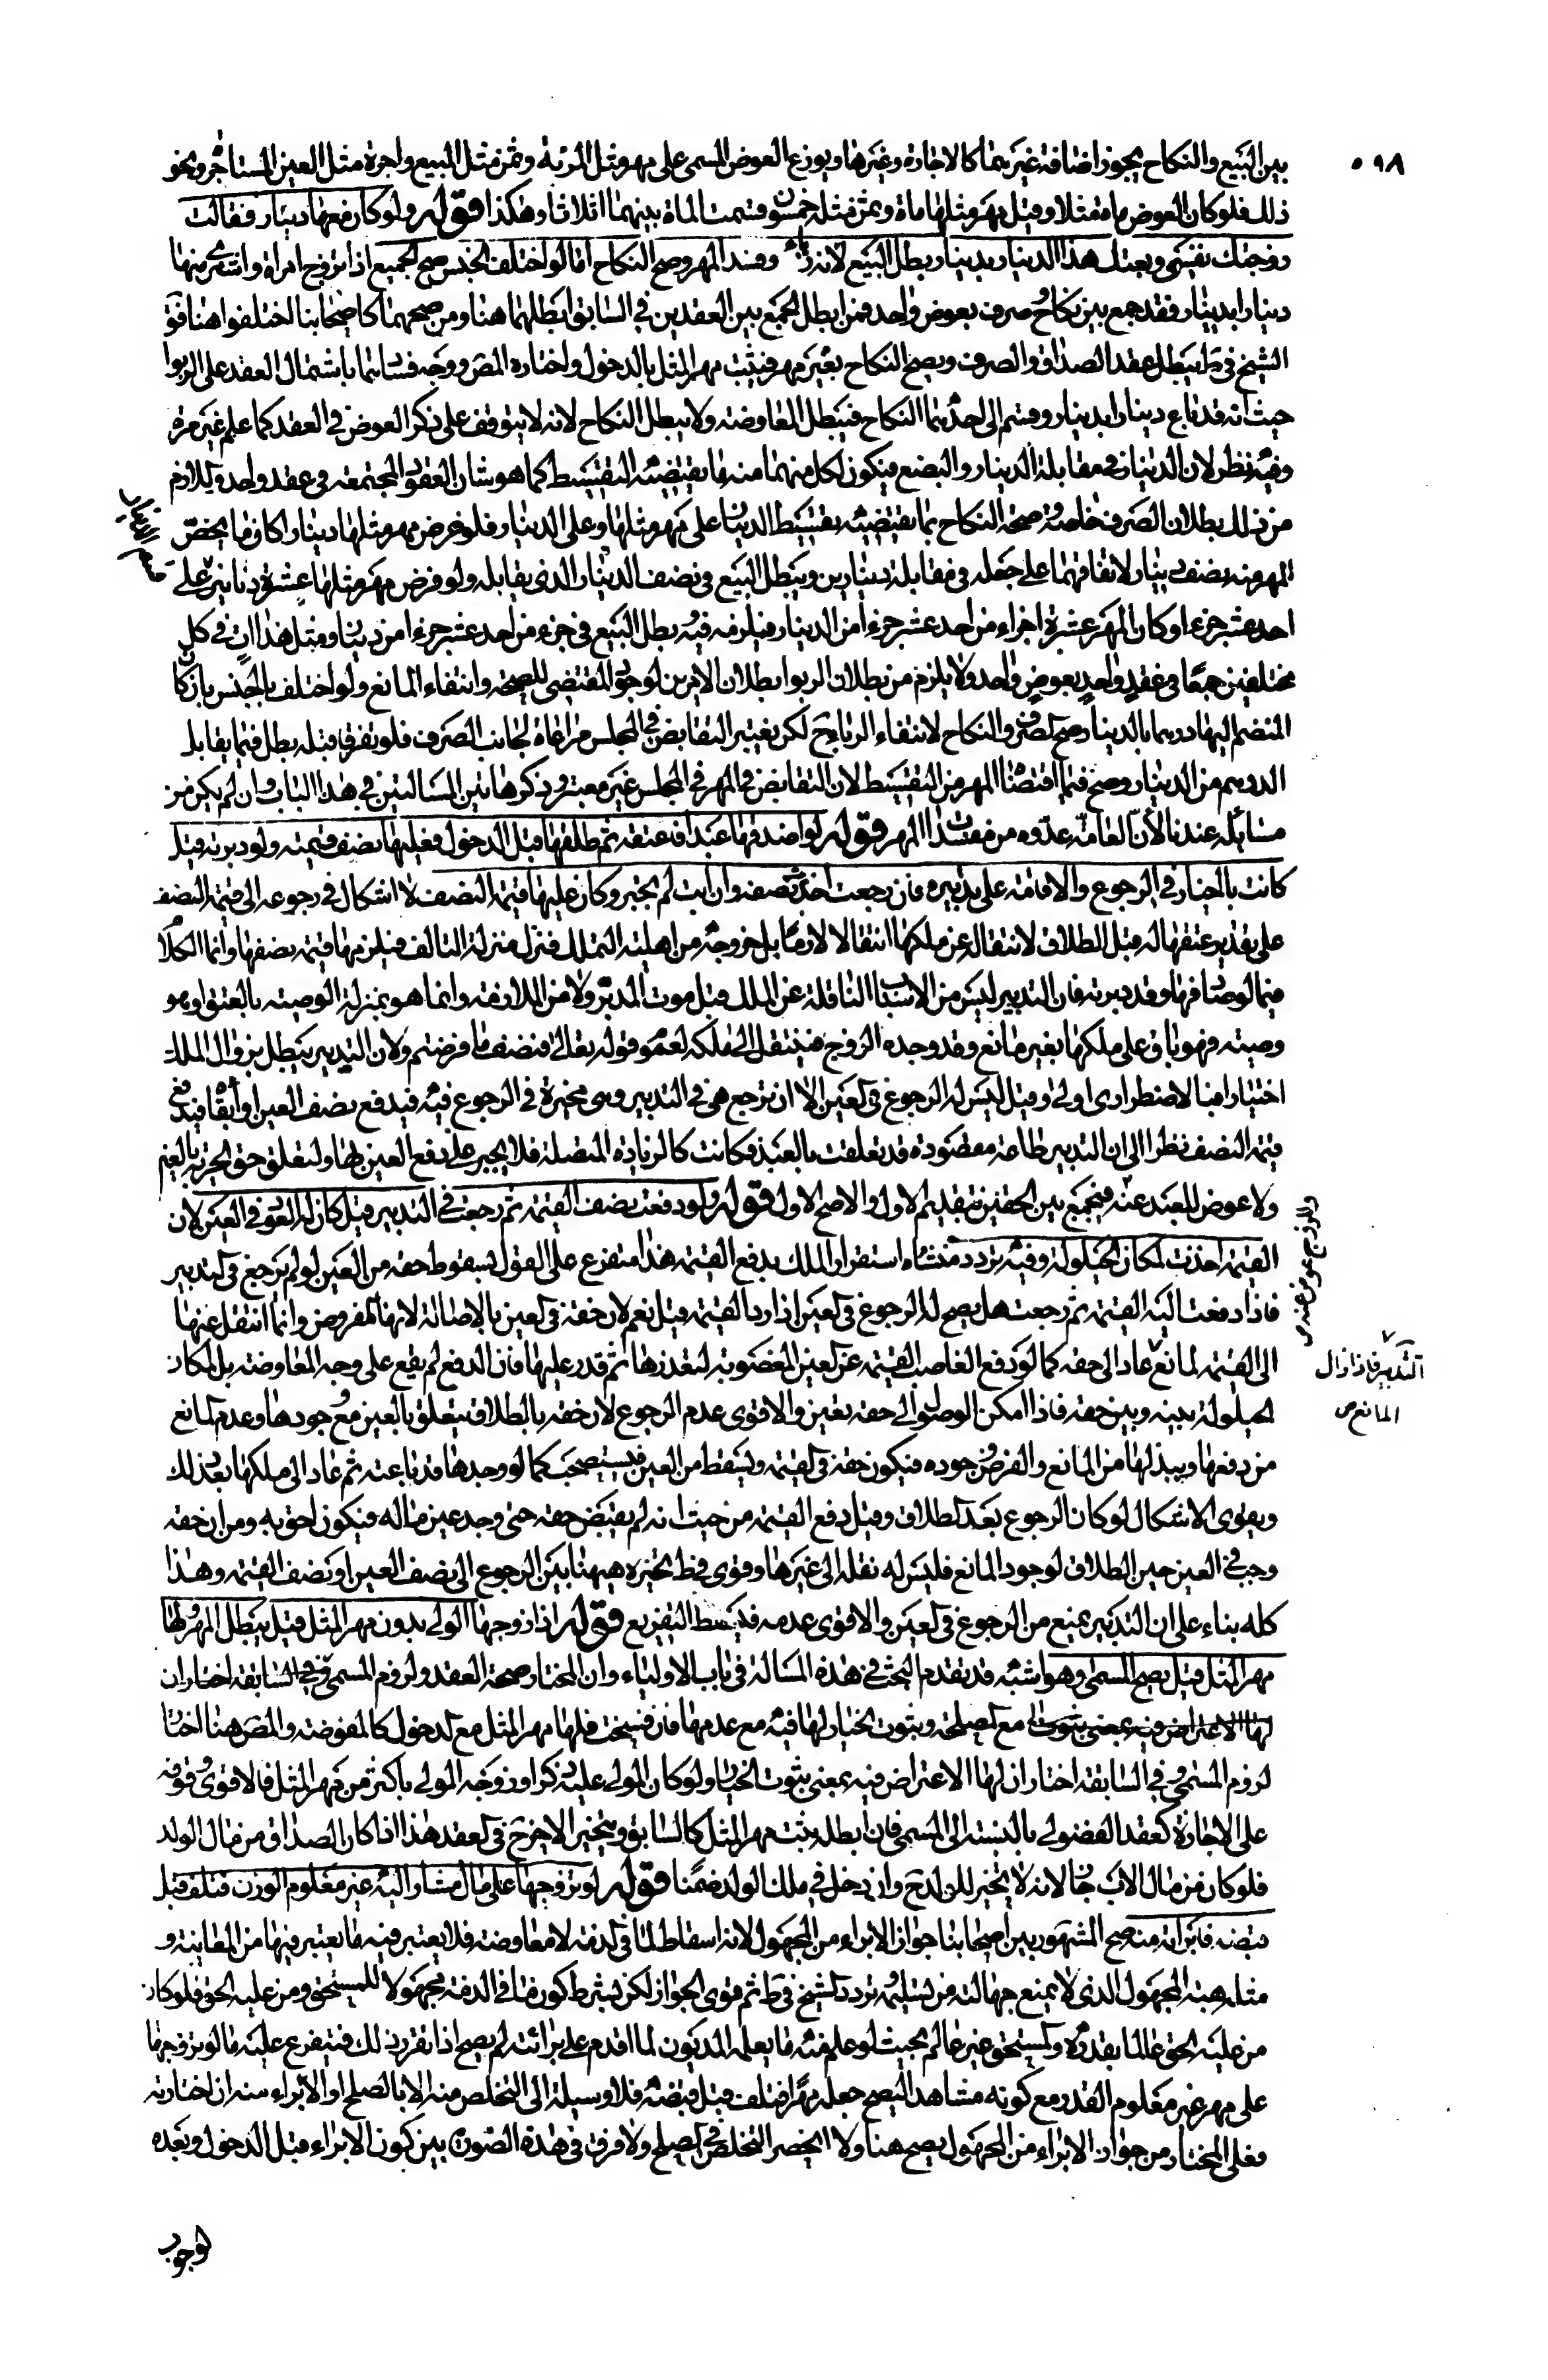 ٥٩٨
بين البيع والنكاح يجوز اضافة غيرهما كالاجارة وغيرها ويوزع العوض المسمى على مهر مثل المرئة وثمن مثل المبيع واجرة مثل العين المستاجر ونحو
ذلك فلو كان العوض مائة مثلا وقيل مهر مثلها مائة وثمن مثله خمسون قسمت المائة بينهما اثلاثا وهكذا قوله ولو كان معها دينار فقالت
زوجتك نفسي وبعتك هذا الدينار بدينار بطل البيع لانه ربا وفسد المهر وصح النكاح اما لو اختلف الجنس صح الجميع اذا تزوج امراة واشترى منها
دينارا بدينار فقد جمع بين نكاح وصرف بعوض واحد فمن ابطل الجمع بين العقدين في السابق ابطلهما هنا ومن صححهما كاصحابنا اختلفوا هنا فقو
الشيخ في ط يبطل عقد الصداق والصرف ويصح النكاح بغير مهر فيثبت مهر المثل بالدخول واختاره المص ووجه فسادهما باشتمال العقد على الربوا
حيث انه قد باع دينارا بدينار وضم الى احدهما النكاح فيبطل المعاوضة ولا يبطل النكاح لانه لا يتوقف على ذكر العوض في العقد كما علم غير مرة
وفيه نظر لان الدينار في مقابلة الدينار والبضع فيكون لكل منهما منه ما يقتضيه التقسيط كما هو شان العقود المجتمعة في عقد واحد ويلازم
من ذلك بطلان الصرف خاصة وصحة النكاح بما يقتضيه بتقسيط الدينار على مهر مثلها وعلى الدينار فلو فرض مهر مثلها دينار كان ما يخص
المهر منه نصف دينار لاتفاقهما على جعله في مقابلة دينارين ويبطل البيع في نصف الدينار الذي يقابله ولو فرض مهر مثلها عشرة دنانير على
احد عشر جزءا وكان المهر عشرة اجزاء من احد عشر جزءا من الدينار فيلزمه فيه بطل البيع في جزء من احد عشر جزءا من دينار ومثل هذا ات في كل
مختلفين جمعا في عقد واحد بعوض واحد ولا يلزم من بطلان الربوا بطلان الامرين لوجود المقتضي للصحة وانتفاء المانع ولو اختلف الجنس بان كان
المنضم اليها درهما بالدينار صح الصرف والنكاح لانتفاء الربا ح لكن يعتبر التقابض في المجلس مراعاة لجانب الصرف فلو تفرقا قبله بطل فيما يقابل
الدرهم من الدينار وصح فيما اقتضاه المهر من التقسيط لان التقابض في المهر في المجلس غير معتبر وذكر هاتين المسالتين في هذا الباب وان لم يكن من
مسائله عندنا لان العامة عدوه من مفسدات المهر قوله لو اصدقها عبدا فاعتقه ثم طلقها قبل الدخول فعليها نصف قيمته ولو دبرته قيل
كانت بالخيار في الرجوع والاقامة على تدبيره فان رجعت اخذ نصفه وان ابت لم تجبر وكان عليها قيمة النصف لا اشكال في رجوعه الى قيمة النصف
على تقدير عتقها له قبل الطلاق لانتقاله عن ملكها انتقالا لازما بل خروجه من اهلية التملك فنزل منزلة التالف فيلزمها قيمة نصفها وانما الكلام
فيما لو صادفها وقد دبرته فان التدبير ليس من الاسباب الناقلة عن الملك قبل موت المدبر ولا من اللازمة وانما هو بمنزلة الوصية بالعتق او هو
وصيته فهو باق على ملكها بغير مانع وقد وجده الزوج فينتقل الى ملكه لعموم قوله تعالى فنصف ما فرضتم ولان التدبير يبطل بزوال الملك
اختيارا فبالاضطراري اولى وقيل ليس له الرجوع في العين الا ان ترجع هي في التدبير وهي مخيرة في الرجوع فيه فيدفع نصف العين او ابقائه فيدفع
قيمة النصف نظرا الى ان التدبير طاعة مقصودة قد تعلقت بالعبد فكانت كالزيادة المتصلة فلا يجبر على دفع العين لها ولتعلق حق الحرية بالعين
ولا عوض للعبد عنه فيجمع بين الحقين بتقديم الاول والاصح الاول قوله ولو دفعت نصف القيمة ثم رجعت في التدبير قيل كان له العود في العين لان
القيمة اخذت لمكان الحيلولة وفيه تردد منشاه استقرار الملك بدفع القيمة هذا متفرع على القول بسقوط حقه من العين لو لم ترجع في التدبير
فاذا دفعت اليه القيمة ثم رجعت هل يصح له الرجوع في العين اذا رد القيمة قيل نعم لان حقه في العين بالاصالة لانها المفروض وانما انتقل عنها
الى القيمة لمانع عاد الى حقه كما لو دفع الغاصب القيمة عن العين المغصوبة لتعذرها ثم قدر عليها فان الدفع لم يقع على وجه المعاوضة بل لمكان
التدبير فاذا زال
المانع ص
الحيلولة بينه وبين حقه فاذا امكن الوصول الى حقه تعين والاقوى عدم الرجوع لان حقه بالطلاق يتعلق بالعين مع وجودها وعدم المانع
من دفعها وببدلها من المانع والفرض وجوده فيكون حقه في القيمة ويسقط من العين فيستصحب كما لو وجدها قد باعته ثم عاد الى ملكها بعد ذلك
ويقوى الاشكال لو كان الرجوع بعد الطلاق وقبل دفع القيمة من حيث انه لم يقبض حقه حتى وجد عين ماله فيكون احق به ومن ان حقه
وجب في العين حين الطلاق لوجود المانع فليس له نقله الى غيرها وقوى في ط تخيره ههنا بين الرجوع الى نصف العين او نصف القيمة وهذا
كله بناء على ان التدبير يمنع من الرجوع في العين والاقوى عدمه فيسقط التفريع قوله اذا زوجها الولي بدون مهر المثل قيل يبطل المهر ولها
مهر المثل قيل يصح المسمى وهو اشبه قد تقدم البحث في هذه المسالة في باب الاولياء وان المختار صحة العقد ولزوم المسمى وفي السابقة اختار ان
لها الاعتراض فيه بمعنى ثبوت مع المصلحة وثبوت الخيار لها فيه مع عدمها فان فسخت فلها مهر المثل مع الدخول كالمفوضة والمص هنا اختار
لزوم المسمى وفي السابقة اختار ان لها الاعتراض فيه بمعنى ثبوت الخيار ولو كان المولى عليه ذكرا وزوجه المولى باكثر من مهر المثل فالاقوى وقوفه
على الاجازة كعقد الفضولي بالنسبة الى المسمى فان ابطله ثبت مهر المثل كالسابق ويتخير الاخر ح في العقد هذا اذا كان الصداق من مال الولد
فلو كان من مال الاب جاز لانه لا تخير للولد ح وان دخل في ملك الولد ضمنا قوله لو تزوجها على مال مشار اليه غير معلوم الوزن فتلف قبل
قبضه فابراته منه صح المشهور بين اصحابنا جواز الابراء من المجهول لانه اسقاط لما في الذمة لا معاوضة فلا يعتبر فيه ما يعتبر فيها من المعاينة و
مثله هبة المجهول الذي لا يمنع جهالته من تسليمه تردد الشيخ في ط ثم قوى الجواز لكن بشرط كون ما في الذمة مجهولا للمستحق ومن عليه الحق فلو كان
من عليه الحق عالما بقدره والمستحق غير عالم بحيث لو علم منه ما يعلمه المديون لما اقدم على برائته لم يصح اذا تقرر ذلك فيتفرع عليه ما لو تزوجها
على مهر غير معلوم القدر مع كونه مشاهدا ليصح جعله مهرا فتلف قبل قبضه فلا وسيلة الى التخلص منه الا بالصلح او الابراء منه ان اختارته
فعلى المختار من جواز الابراء من المجهول يصح هنا ولا انحصر التخلص في الصلح ولا فرق في هذه الصورة بين كون الابراء قبل الدخول وبعده
لوجود